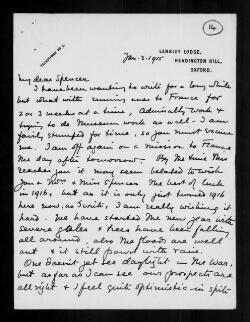 14
TELEPHONE
LANGLEY LODGE,
HEADINGTON HILL,
OXFORD.
Jan-2-1915
My dear Spencer
I have been wanting to write for a long while
but what with running over to France for
2 or 3 weeks at a time, Admiralty work &
trying to do Museum work as well - I am
fairly stumped for time, so you must excuse
me. I am off again on a mission to France
the day after tomorrow. By the time this
reaches you it may seem belated to wish
you & Mrs. & Miss Spencer the best of luck
in 1916, but as it is only just turned 1916
here now, as I write, I am really wishing it
hard. We have started the new year with
severe gales & trees have been falling
all around, also the floods are well
out & it still pours with rain.
One doesn't yet see daylight in the War,
but as far as I can see our prospects are
all right & I feel quite optimistic in spite